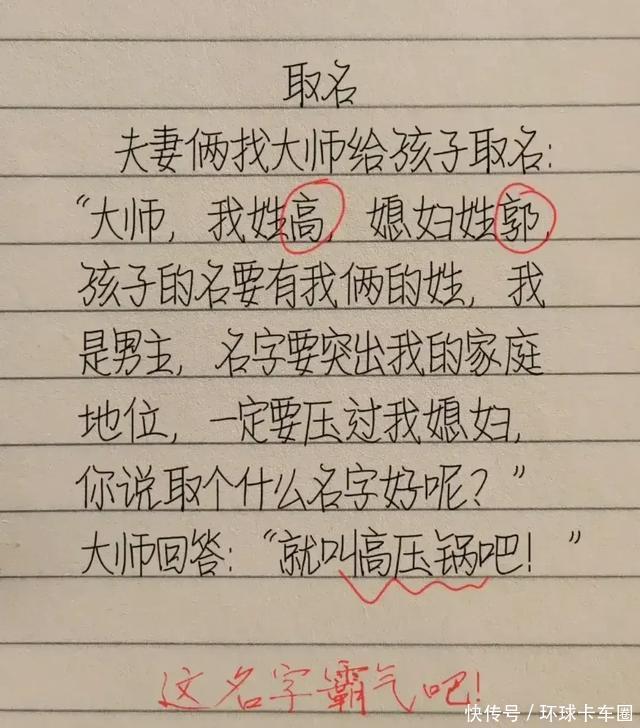 取名
夫妻俩找大师给孩子取名：
“大师，我姓高，媳妇姓郭，
孩子的名要有我俩的姓，我
是男主，名字要突出我的家庭
地位，一定要压过我媳妇，
你说取个什么名字好呢？”
大师回答：“就叫高压锅吧！”
这名字霸气吧！
快传号／环球卡车圈